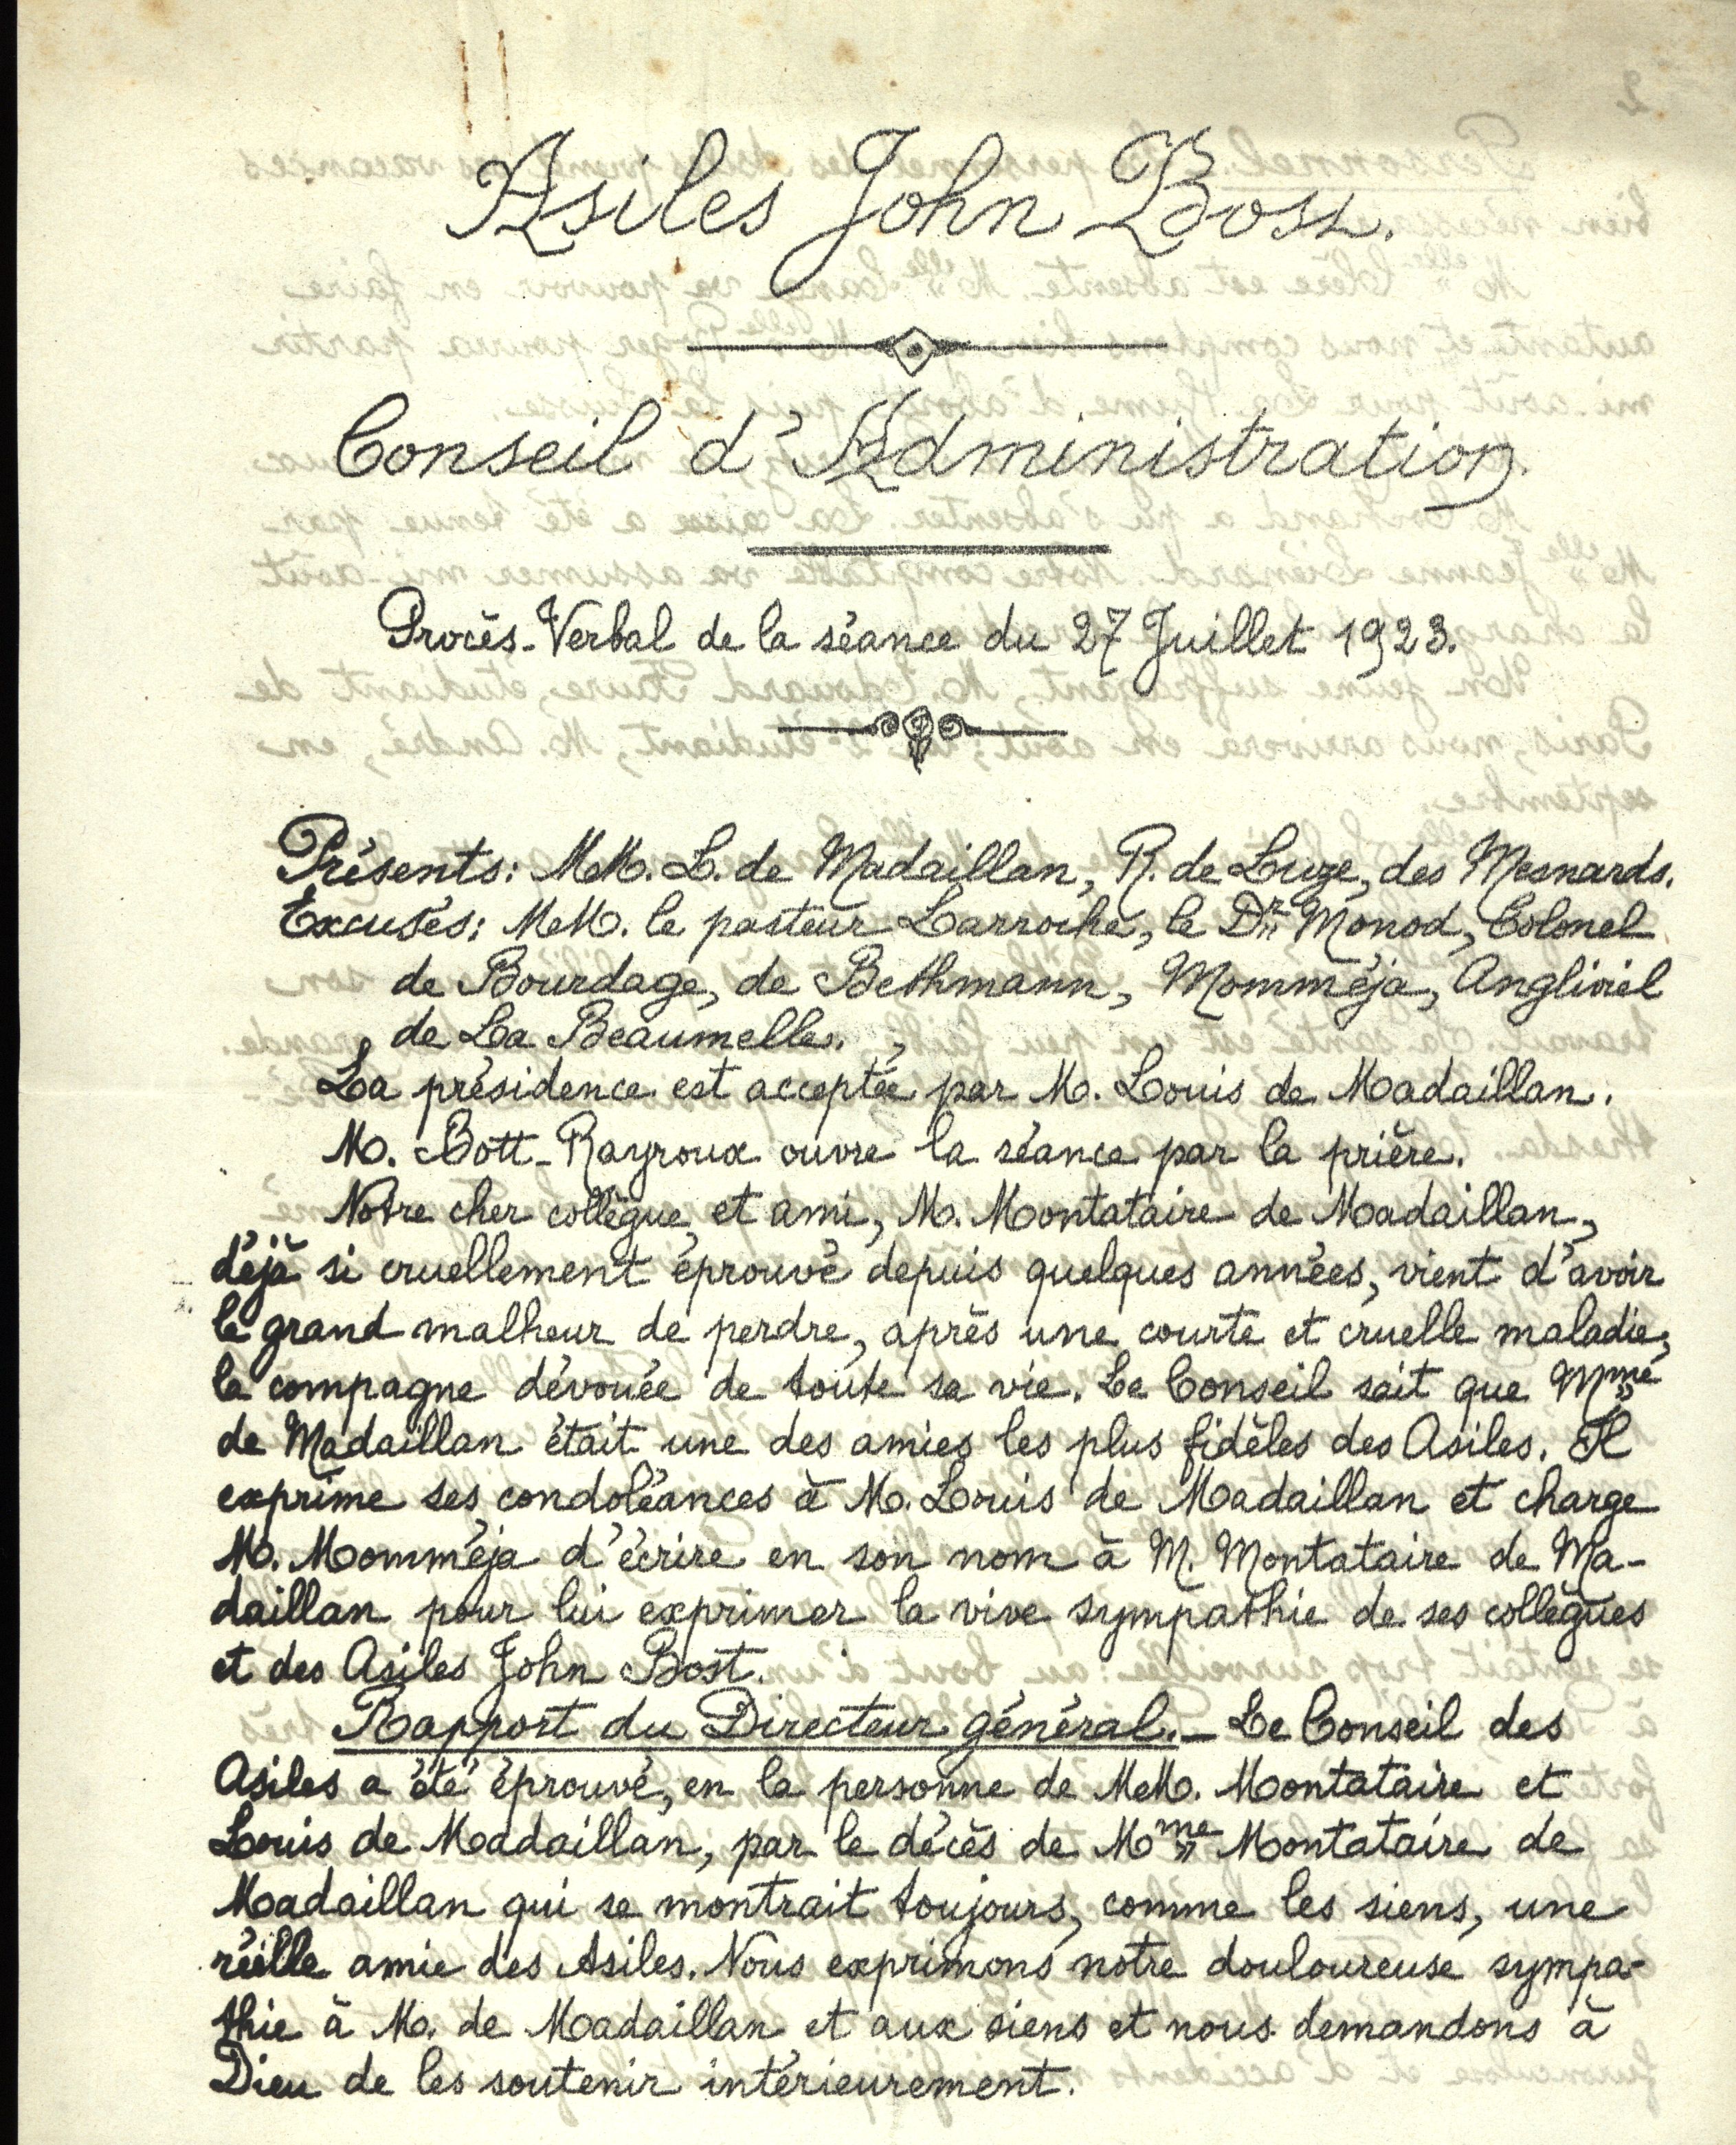 Asiles John Bost.
Conseil d'Administration.
Procès-Verbal de la séance du 27 Juillet 1923.
Présents: MM. L. de Madaillan, R. de Luze, des Mesnards.
Excusés: MM. le pasteur Larroche, le Dr Monod, Colonel
de Bourdage, de Bethmann, Momméja, Angliviel
de La Beaumelle.
La présidence est acceptée par M. Louis de Madaillan.
M. Bott-Rayroux ouvre la séance par la prière.
Notre cher collègue et ami, M. Montataire de Madaillan,
déjà si cruellement éprouvé depuis quelques années, vient d'avoir
le grand malheur de perdre, après une courte et cruelle maladie,
la compagne dévouée de toute sa vie. Le Conseil sait que Mme
de Madaillan était une des amies les plus fidèles des Asiles. Il
exprime ses condoléances à M. Louis de Madaillan et charge
M. Momméja d'écrire en son nom à M. Montataire de Ma-
daillan pour lui exprimer la vive sympathie de ses collègues
et des Asiles John Bost.
Rapport du Directeur général. - Le Conseil des
Asiles a été éprouvé, en la personne de MM. Montataire et
Louis de Madaillan, par le décès de Mme Montataire de
Madaillan qui se montrait toujours, comme les siens, une
réelle amie des Asiles. Nous exprimons notre douloureuse sympa-
thie à M. de Madaillan et aux siens et nous demandons à
Dieu de les soutenir intérieurement.